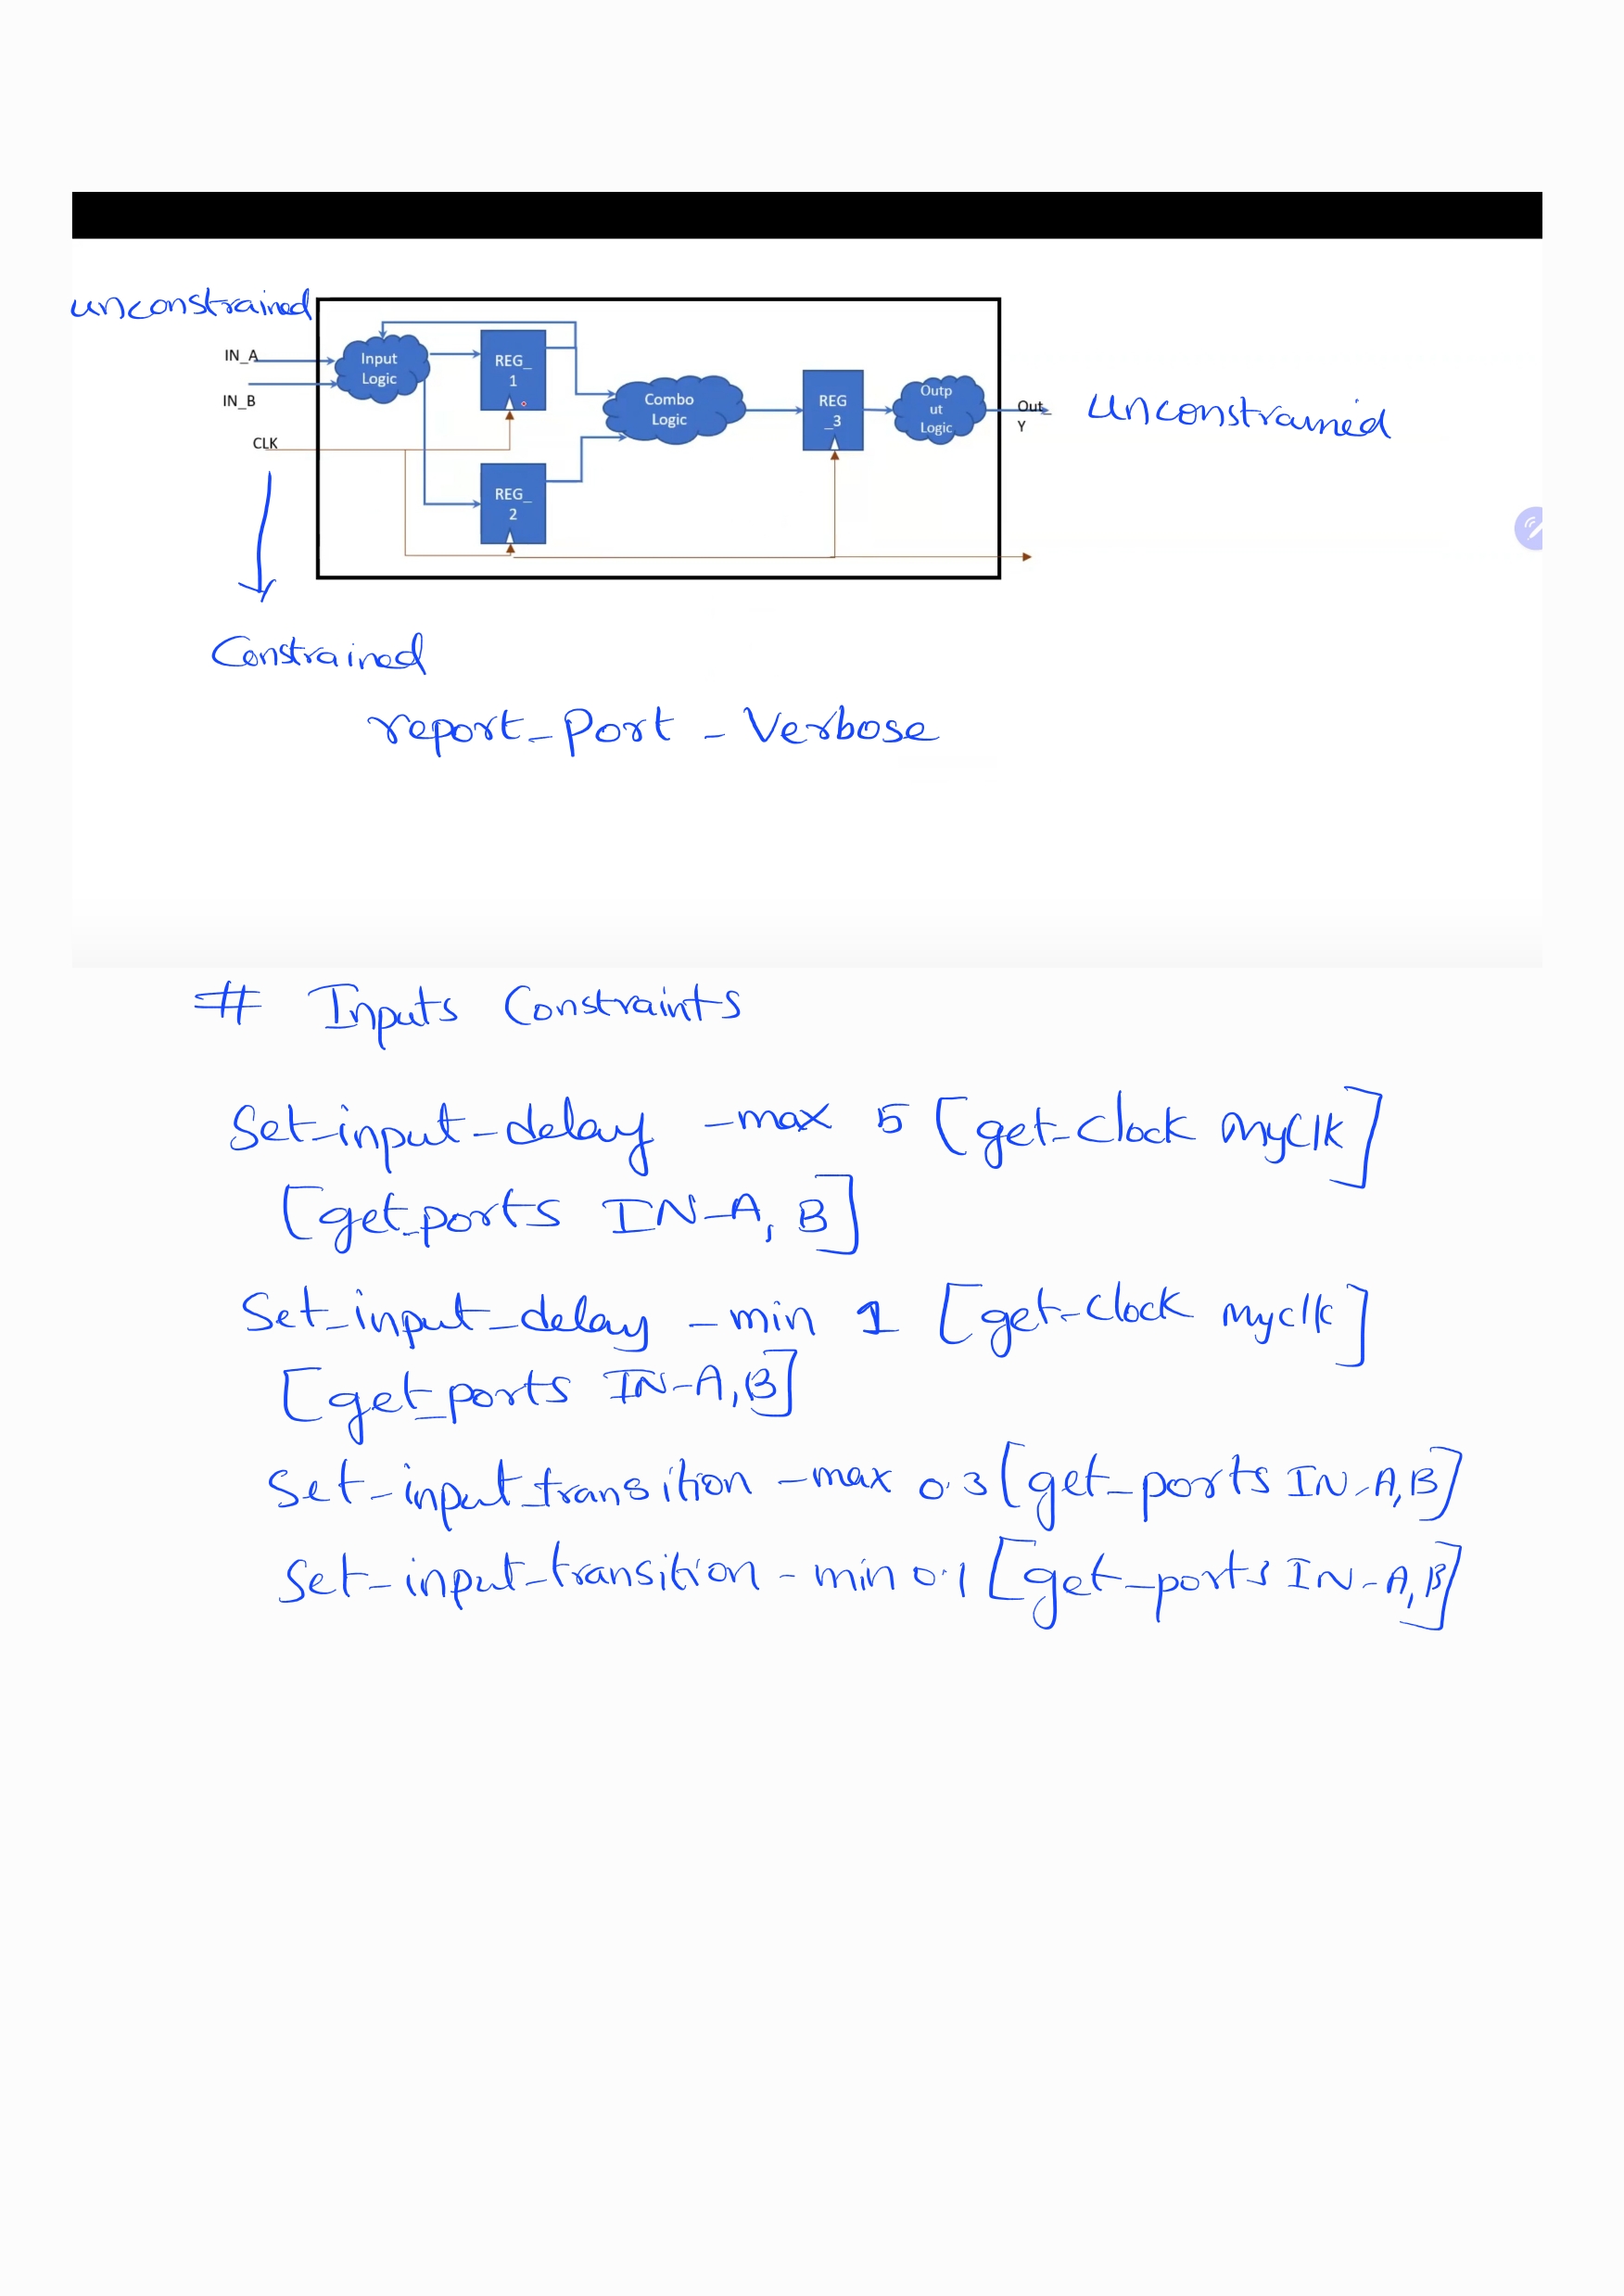 unconstrained
IN_A
IN_B
CLK
Input
Logic
REG_
1
REG_
2
Combo
Logic
REG
_3
Outp
ut
Logic
Out_
Y
Unconstrained
Constrained
report_Port - Verbose
# Inputs Constraints
Set-input-delay -max 5 [get-clock myclk]
[get_ports IN-A, B]
Set-input-delay -min 1 [get-clock myclk]
[get_ports IN-A,B]
Set-input_transition -max 0.3 [get-ports IN-A,B]
Set-input-transition - min 0.1 [get-ports IN-A,B]